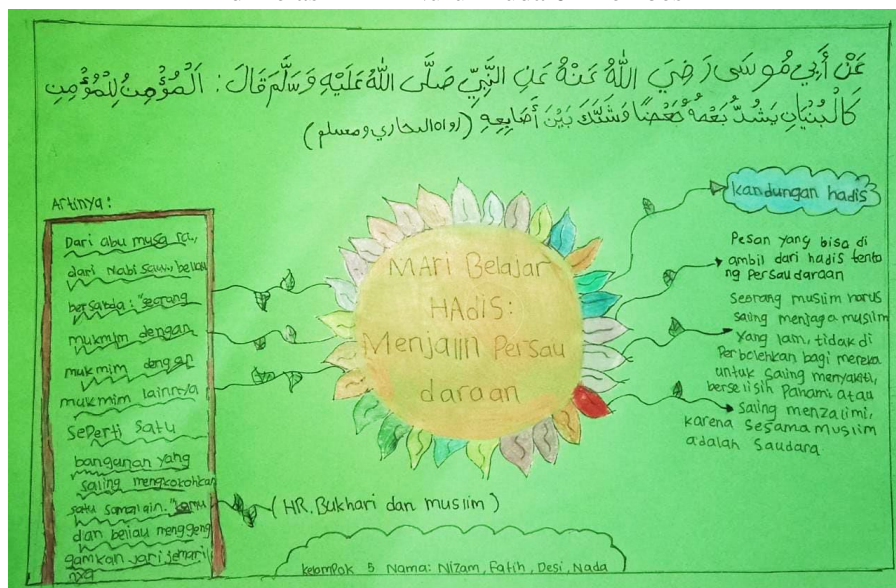 عَنْ أَبِي مُوسَى رَضِيَ اللّٰهُ عَنْهُ عَنِ النَّبِيِّ صَلَّى اللّٰهُ عَلَيْهِ وَسَلَّمَ قَالَ : اَلْمُؤْمِنُ لِلْمُؤْمِنِ
كَالْبُنْيَانِ يَشُدُّ بَعْضُهُ بَعْضًا وَشَبَّكَ بَيْنَ أَصَابِعِهِ (رواه البخاري ومسلم)
Artinya:
Dari abu musa ra,
dari Nabi saw, beliau
bersabda: "seorang
mukmim dengan
mukmim dengan
mukmim lainnya
seperti satu
banganan yang
saling mengkokohkan
satu sama lain."
dan beliau menggeng
gamkan jari jemari
nya
(HR. Bukhari dan muslim)
MAri Belajar
HAdis:
Menjalin Persau
daraan
kandungan hadis
Pesan yang bisa di
ambil dari hadis tenta
ng Persaudaraan
Seorang muslim harus
saling menjaga muslim
yang lain, tidak di
Perbolehkan bagi mereka
untuk saling menyakiti,
berselisih Paham, atau
saling menzalimi,
karena sesama muslim
adalah saudara
kelompok 5 Nama: Nizam, Fatih, Desi, Nada